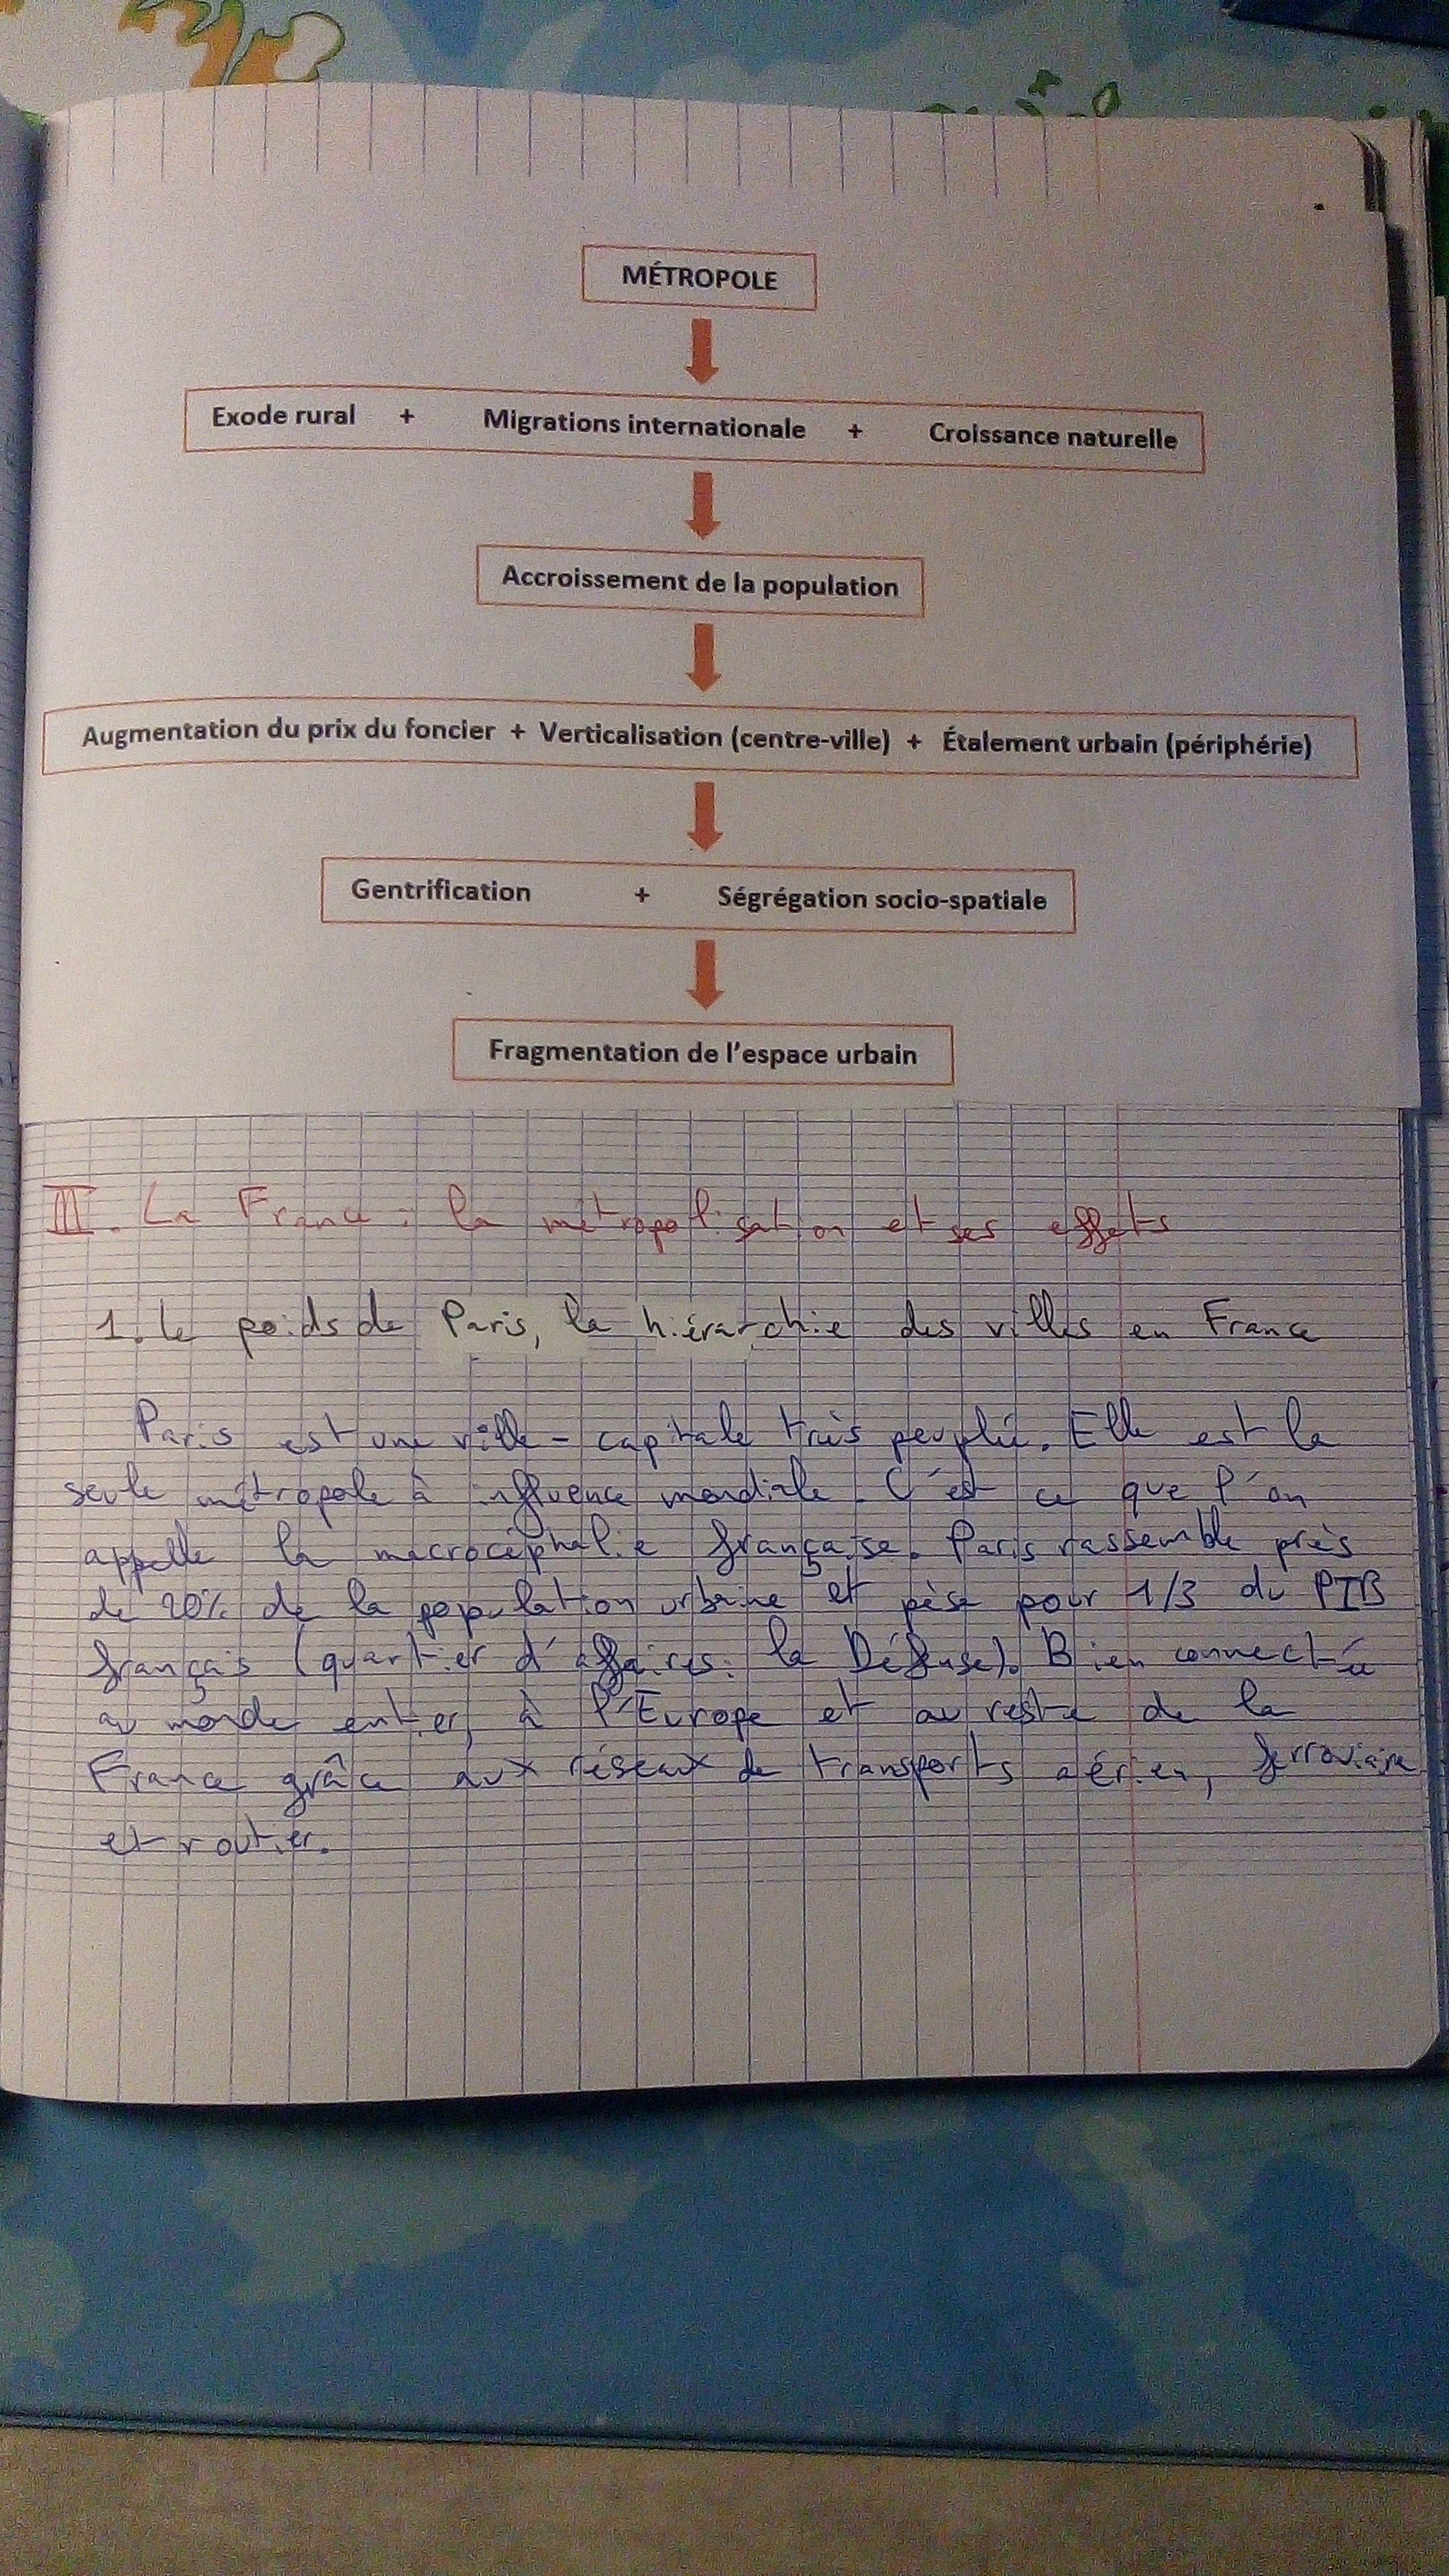 MÉTROPOLE
Exode rural + Migrations internationale + Croissance naturelle
Accroissement de la population
Augmentation du prix du foncier + Verticalisation (centre-ville) + Étalement urbain (périphérie)
Gentrification + Ségrégation socio-spatiale
Fragmentation de l'espace urbain
III. La France : la métropolisation et ses effets
1. Le poids de Paris, la hiérarchie des villes en France
Paris est une ville-capitale très peuplée. Elle est la
seule métropole à influence mondiale. C'est ce que l'on
appelle la macrocéphalie française. Paris rassemble près
de 20% de la population urbaine et pèse pour 1/3 du PIB
français (quartier d'affaires: la Défense). Bien connectée
au monde entier, à l'Europe et au reste de la
France grâce aux réseaux de transports aérien, ferroviaire
et routier.